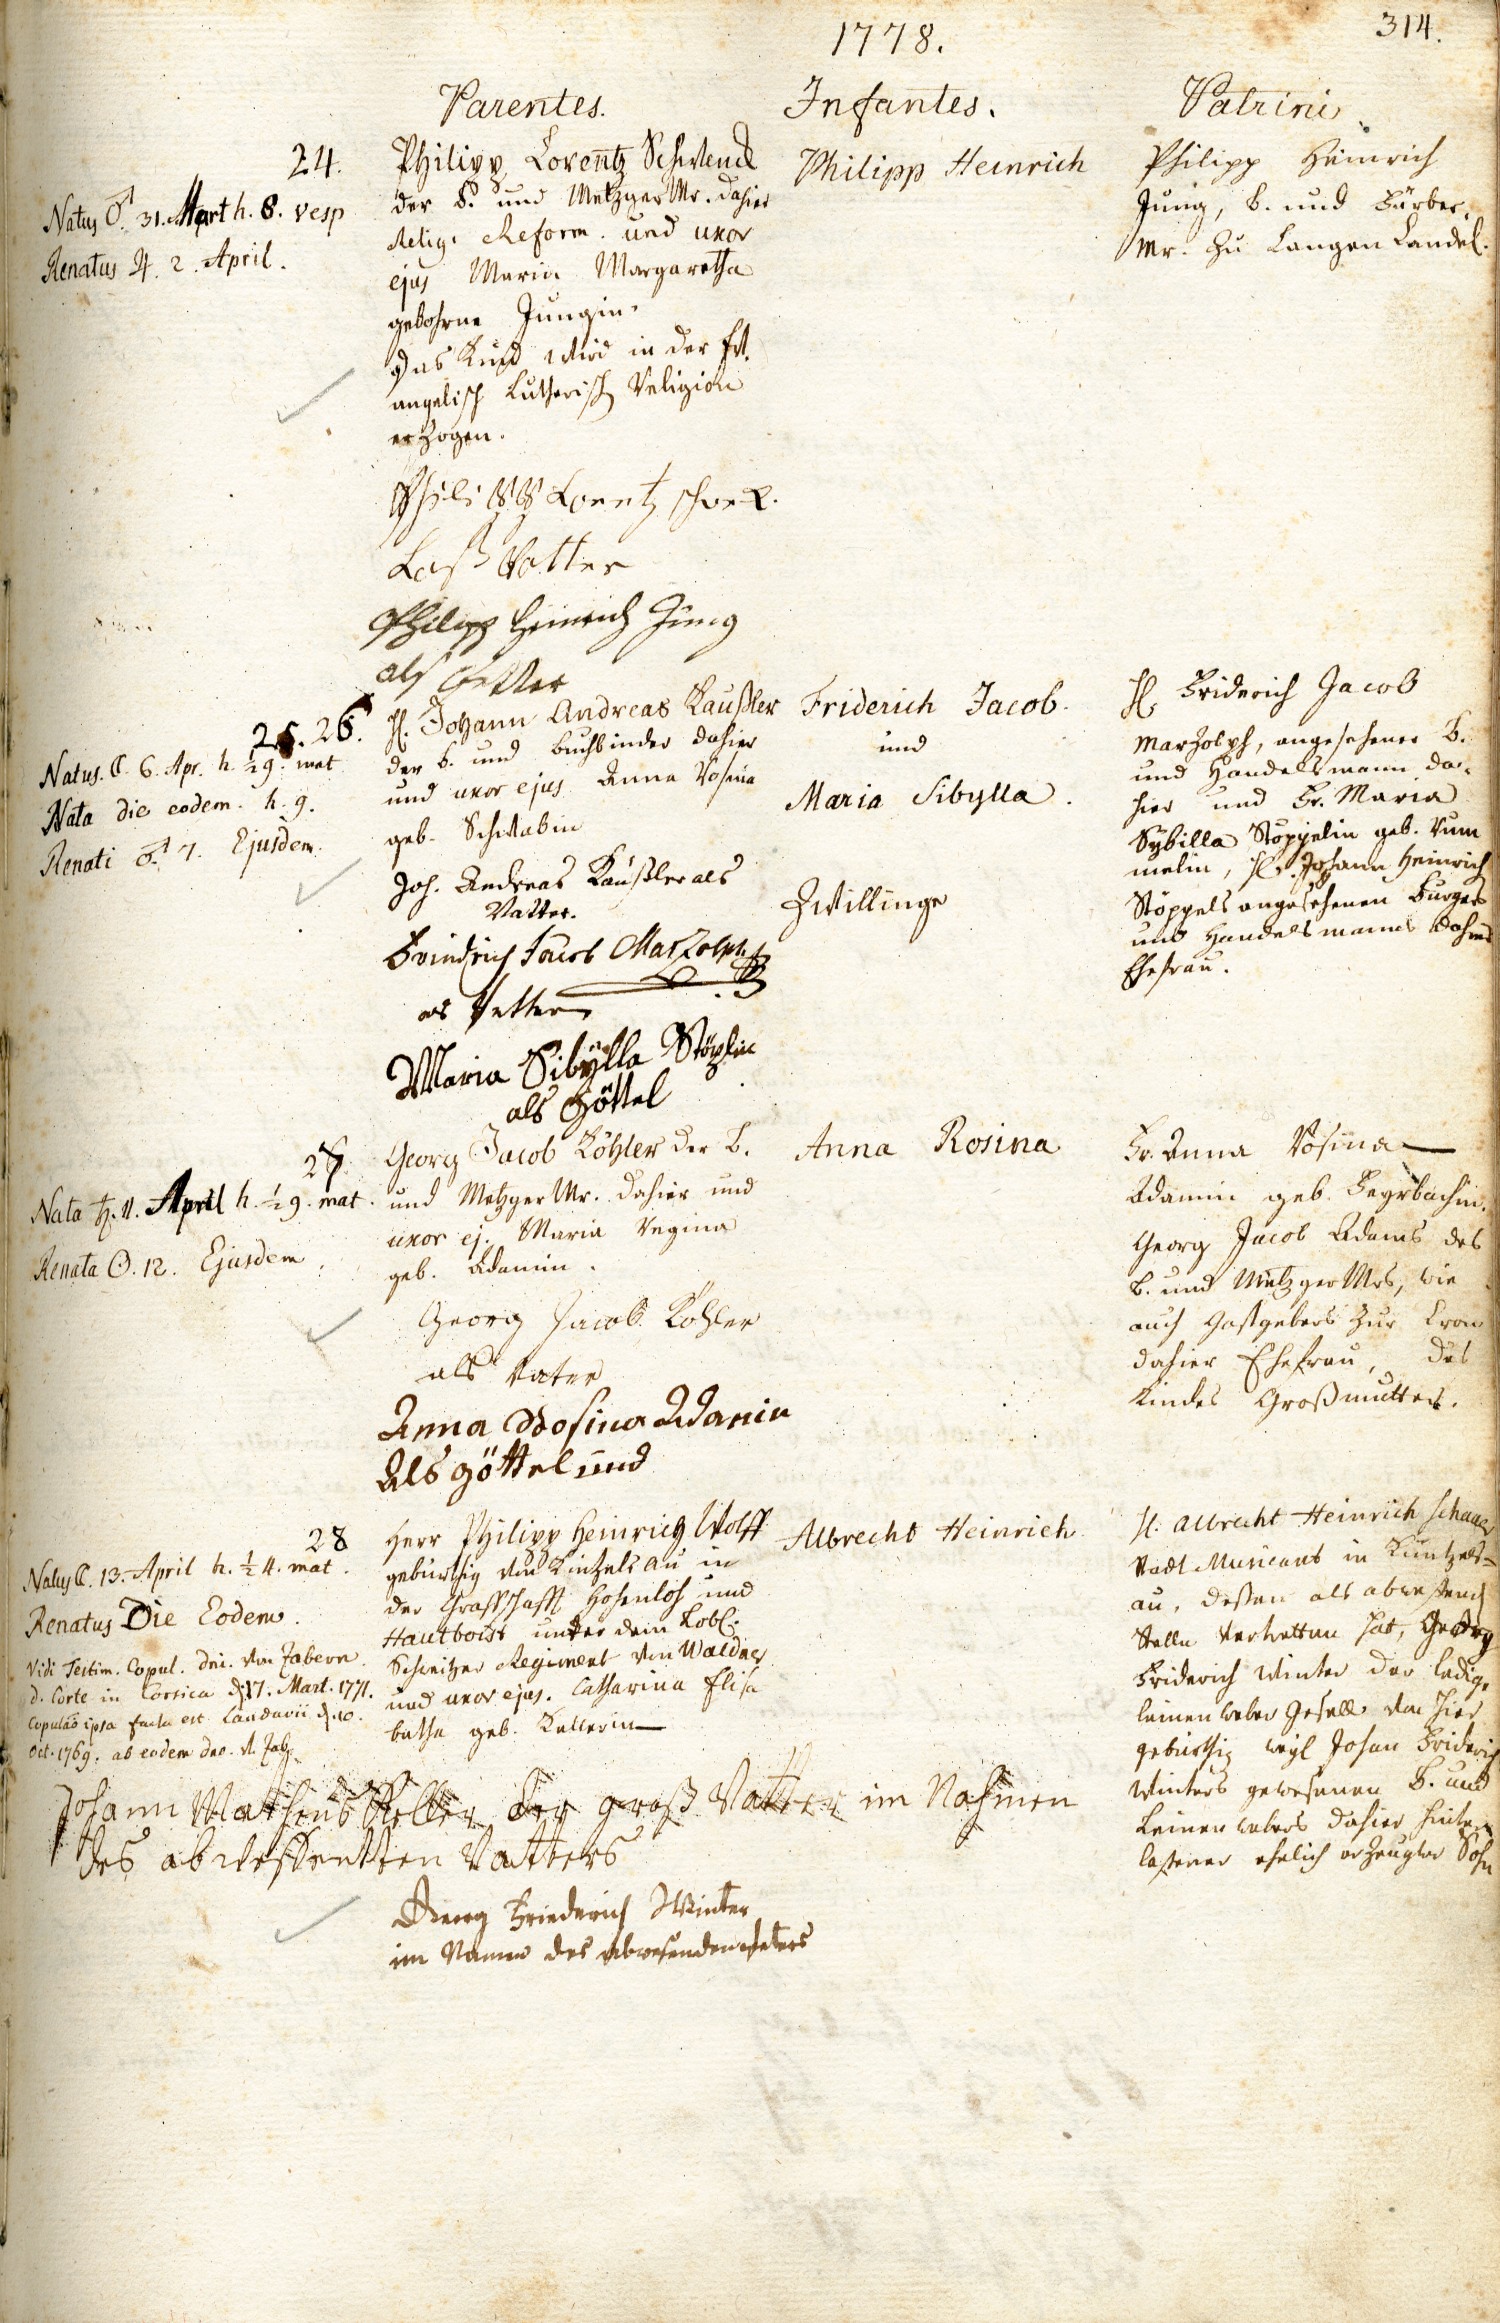 314.
1778.
Parentes. Infantes. Patrini
24.
Natus ♂. 31. Mart h. 8. vesp
Renatus ♃. 2. April.
Philipp Lorentz Schwenck
der B. und Metzger Mr. dahier
Relig. Reform. und uxor
ejus Maria Margaretha
gebohrne Jungin.
Das Kind wird in der Ev-
angelisch Lutherisch Religion
erzogen.
Philipp Lorentz
Vatter
Philipp Heinrich Jung
als Petter
Philipp Heinrich
Philipp Heinrich
Jung, b. und Färber-
Mr. zu Langen Candel.
25. 26.
Natus. ☾. 6. Apr. h. ½ 9. mat
Nata die eodem. h. 9.
Renati ♂. 7. Ejusdem.
H. Johann Andreas Kaußler
der b. und buchbinder dahier
und uxor ejus Anna Rosina
geb. Schwabin
Joh. Andreas Kaußler als
Vatter.
Fridrich Jacob Marzolph
als Petter
Maria Sibÿlla Stöplin
als Göttel
Friderich Jacob.
und
Maria Sibylla.
Zwillinge
H. Friderich Jacob
Marzolph, angesehener B.
und Handelsmann da-
hier und Fr. Maria
Sybilla Stöppelin geb. Rum
melin, H. Johann Heinrich
Stöppels angesehenen Burgers
und Handelsmanns dahier
Ehefrau.
27.
Nata ♄. 11. April h. ½ 9. mat.
Renata ☉. 12. Ejusdem.
Georg Jacob Köhler der b.
und Metzger Mr. dahier und
uxor ej. Maria Regina
geb. Adamin.
Georg Jacob Köhler
als Vater
Anna Rosina Adamin
Als göttel und
Anna Rosina
Fr. Anna Rosina
Adamin geb.
Georg Jacob Adams des
b. und Metzger Mrs, wie
auch Gastgebers zur Cron
dahier Ehefrau, des
Kindes Großmutter.
28
Natus ☾. 13. April h. ½ 4. mat.
Renatus Die Eodem.
Vidi Testim. Copul. dni. von Zabern
d. Corte in Corsica d. 17. Mart. 1771.
Copulão ipsa facta est Landavii d. 10.
Oct. 1769. ab eodem dno. v. Zab.
Herr Philipp Heinrich Wolff
gebürthig von Kintzelsau in
der Graffschafft Hohenloh und
Hautboist unter dem Löbl.
Schweitzer Regiment von Waldner
und uxor ejus. Catharina Elisa
betha geb. Kellerin
Johann Matheus Keller der groß Vatter im Nahmen
des abwessentten Vatters
Georg Friederich Winter
im Namen des abwesenden Peters
Albrecht Heinrich
H. Albrecht Heinrich
Stadt Musicant in Küntzels-
au, deßen als abwesend
Stelle vertretten hat, Georg
Friderich Winter der ledige
leinenweber Gesell von hier
gebürthig weyl Johan Friderich
Winters gewesenen B. und
Leinenwebers dahier hinter
laßener ehelich erzeugter Sohn